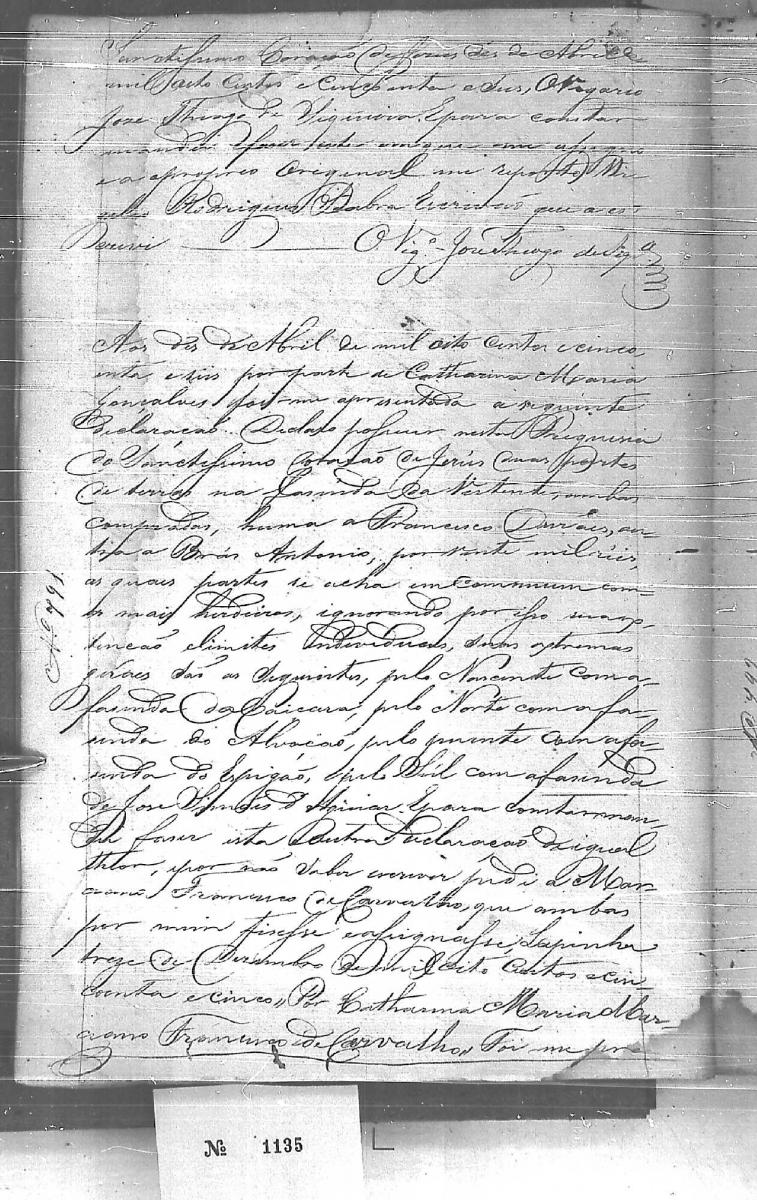 Sanctissimo Coração de Jesus dés de Abril de
mil oito centos e cincoenta e seis, O Vigario
José Thiago de Siqueira. E para constar
mandei faser este em que me assigno
e a proprio Original me reporto, Mi
Rodrigues Seabra Escrivão que a es-
crevi O Vigº José Thiago de Siqª
Aos dés de Abril de mil oito centos e cinco
enta e seis por parte de Catharina Maria
Gonçalves foi-me apresentada a seguinte
Declaração. Declaro possuir nesta Freguesia
do Sanctissimo Coração de Jesus duas partes
de terras na Fasenda da Vertente, ambas
compradas, huma a Francisco Durães, ou-
tra a Brás Antonio, por vinte mil réis,
as quaes partes se acha em commum com
os mais herdeiros, ignorando por isso sua ex-
tenção e limites Individuaes, suas extremas
geraes são as seguintes, pelo Nascente com a
fasenda da Caiçara, pelo Norte com a fa-
senda do Alvação, pelo puente com a fa-
senda do Espigão, e pelo Sul com a fasenda
de José Simões d' E para constar man-
dei faser esta e outra Declaração de igual
theor, e por não saber escrever pedi a Mar-
ciano Francisco de Carvalho, que ambas
por mim fisesse e assignasse, Lapinha
treze de Desembro de mil oito centos e cin-
coenta e cinco, Por Catharina Maria Mar-
ciano Francisco de Carvalho, Foi me por
Nº 1135